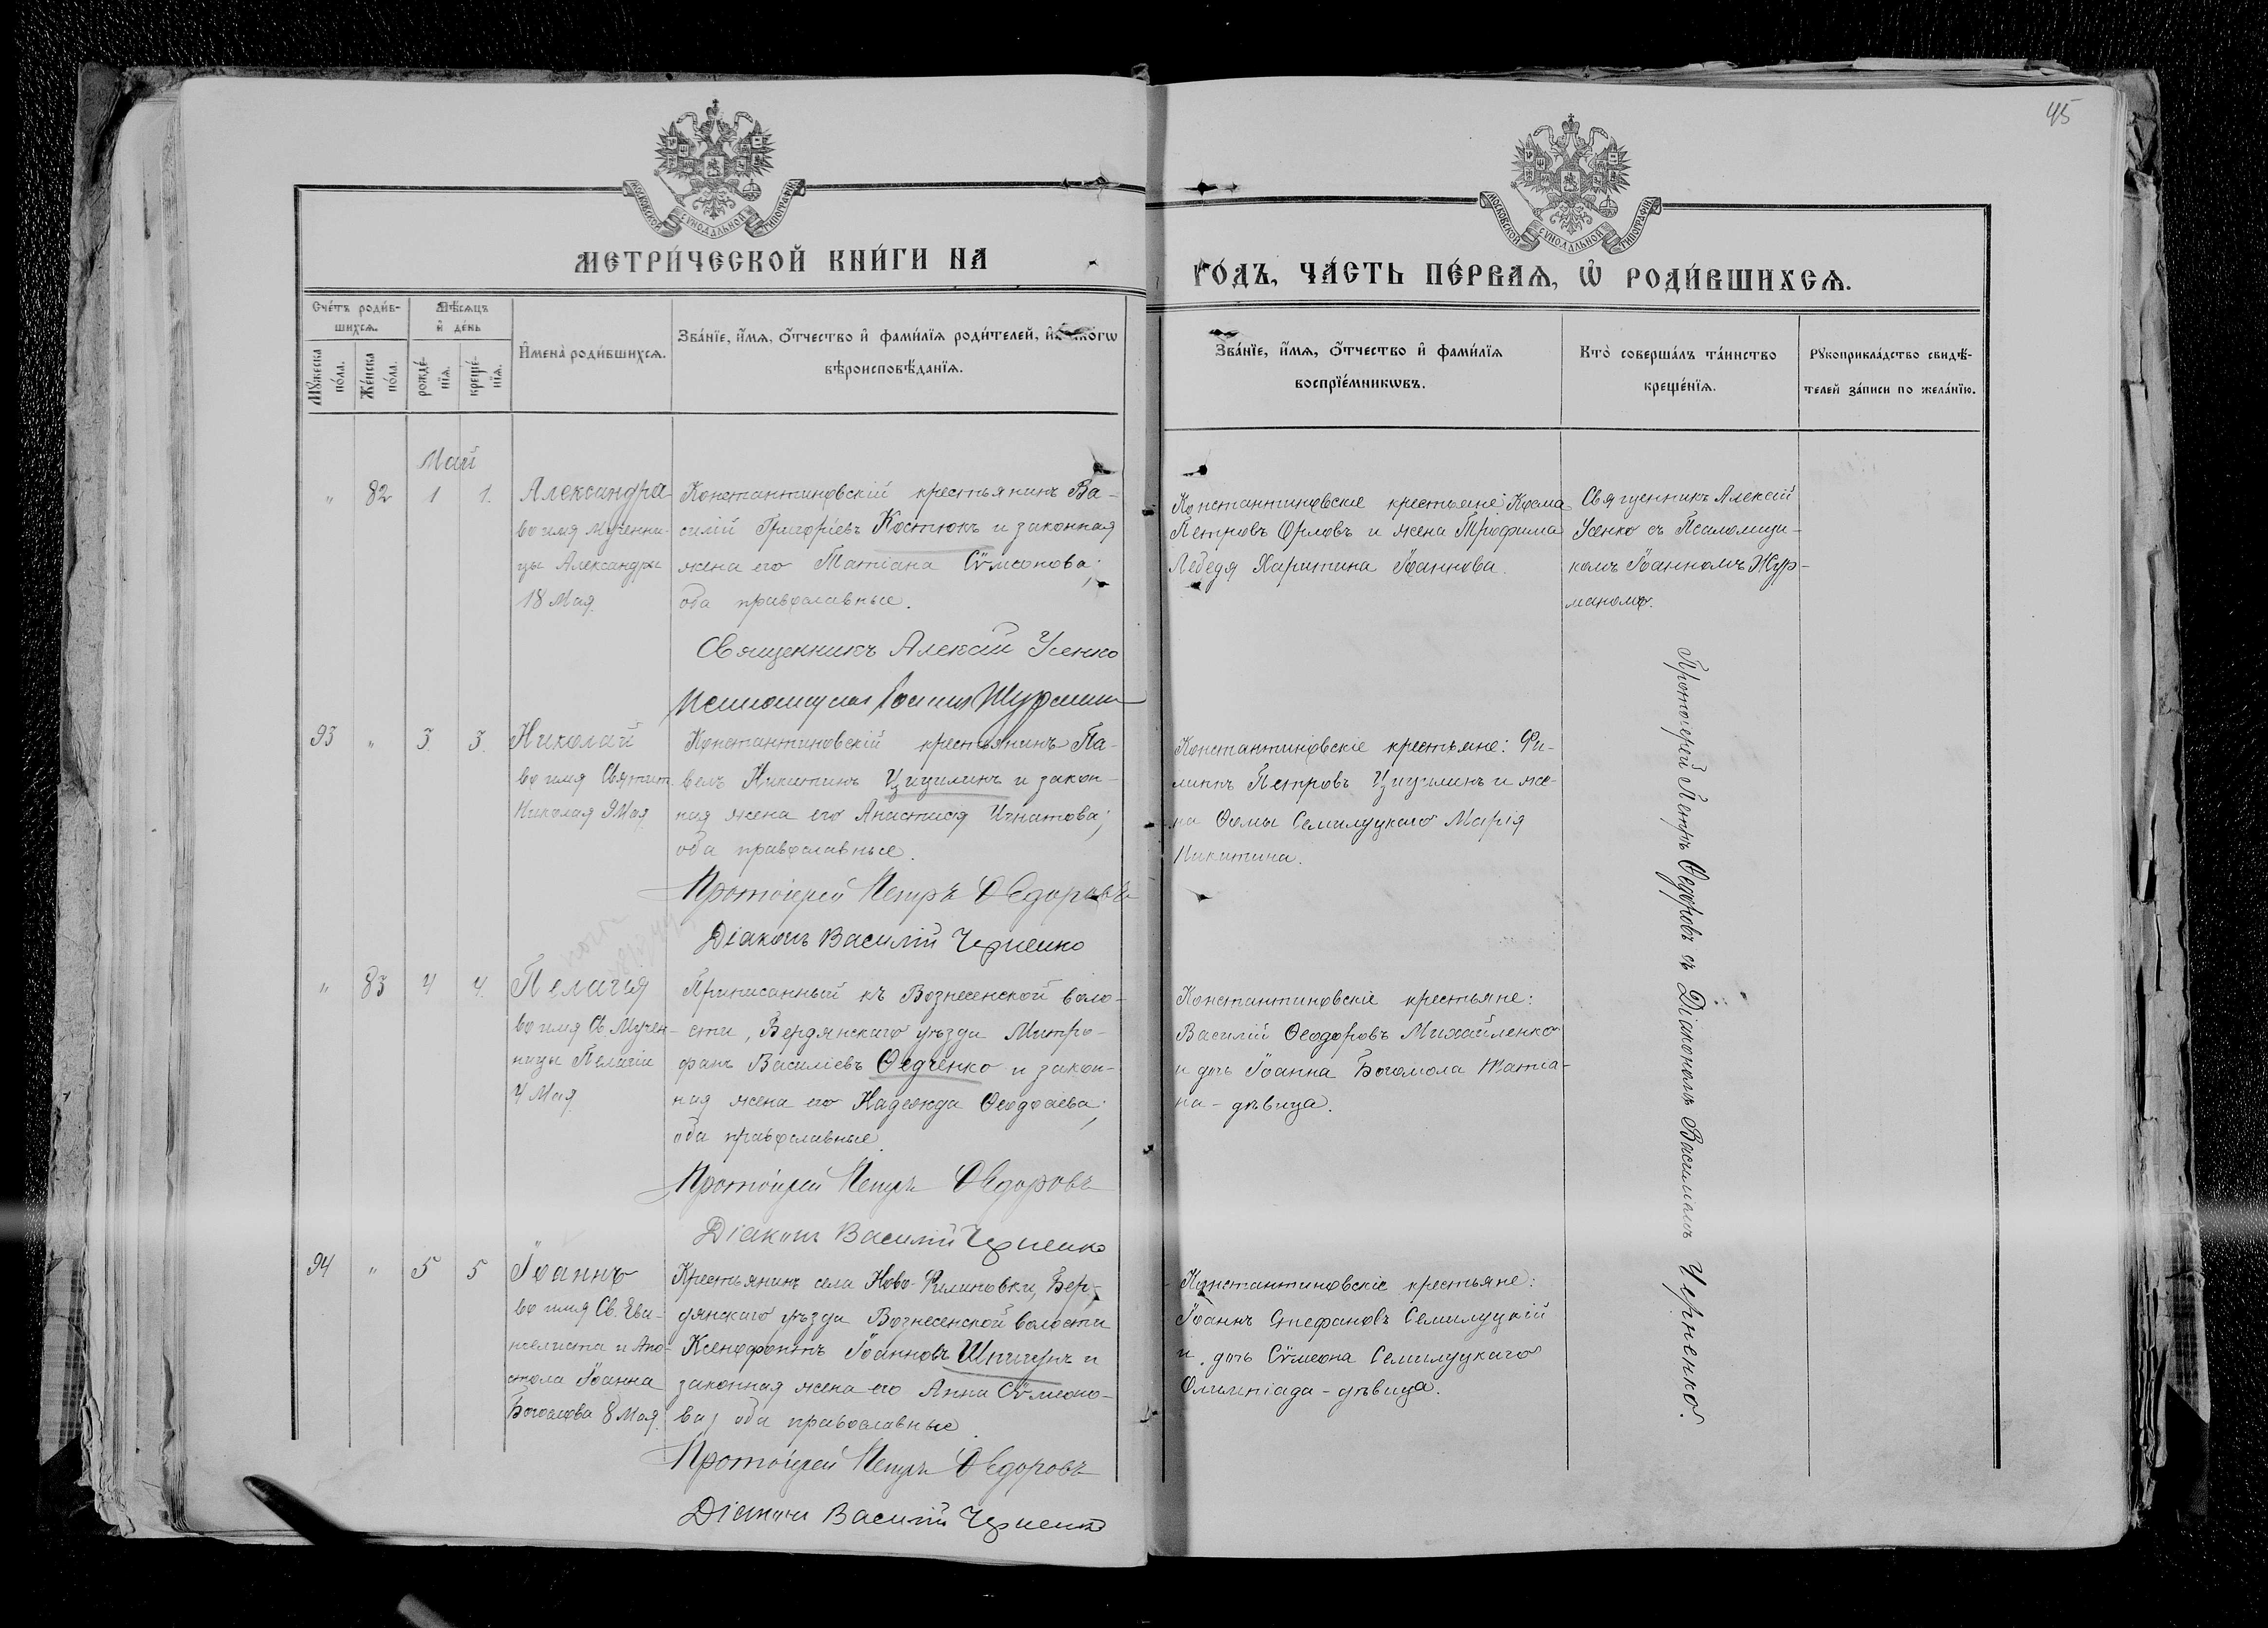 45
МОСКОВСКОЙ СѴНОДАЛЬНОЙ ТИПОГРАФІИ
МОСКОВСКОЙ СѴНОДАЛЬНОЙ ТИПОГРАФІИ
МЕТРИ́ЧЕСКОЙ КНИ́ГИ НА
ГО́ДЪ, ЧА́СТЬ ПЕ́РВАѦ, Ѡ҆ РОДИ́ВШИХСѦ.
Сче́тъ роди́в-
шихсѧ.
Мѣ́сѧцъ
и҆ де́нь
Мꙋ́жеска
по́ла.
Же́нска
по́ла.
рожде́-
нїѧ.
креще́-
нїѧ.
И҆мена̀ роди́вшихсѧ.
Зва́нїе, и҆́мѧ, ѻ҆́тчество и҆ фами́лїѧ роди́телей, и҆
вѣроисповѣ́данїѧ.
Зва́нїе, и҆́мѧ, ѻ҆́тчество и҆ фами́лїѧ
воспрїе́мникѡвъ.
Кто̀ соверша́лъ та́инство
креще́нїѧ.
Рꙋкоприкла́дство свидѣ́-
телей за́писи по жела́нїю.
Май
" 82 1 1.
Александра
во имя Мучени-
цы Александры
18 Мая.
Константиновскій крестьянинъ Ва-
силій Григоріевъ Костюкъ и законная
жена его Татіана Сѵмеонова;
оба православные.
Священникъ Алексій Усенко
Константиновскіе крестьяне: Косма
Петровъ Орловъ и жена Трофима
Лебедя Харитина Іоаннова.
Священникъ Алексій
Усенко съ Псаломщи-
комъ Іоанномъ Жур-
маномъ.
93 " 3. 3.
Николай
во имя Святит.
Николая 9 Мая
Константиновскій крестьянинъ Па-
велъ Никитинъ Цицилинъ и закон-
ная жена его Анастасія Игнатова;
оба православные.
Протоіерей Петръ Ѳедоровъ
Діаконъ Василій Черненко
Константиновскіе крестьяне: Фи-
липпъ Петровъ Цицилинъ и же-
на Ѳомы Семилуцкаго Марія
Никитина.
" 83 4 4.
Пелагія
во имя Св. Мучен-
ницы Пелагіи
4 Мая
Приписанный къ Вознесенской воло-
сти, Бердянскаго уѣзда Митро-
фанъ Василіевъ Ѳедченко и закон-
ная жена его Надежда
оба православные
Протоіерей Петръ Ѳедоровъ
Діаконъ Василій Черненко
Константиновскіе крестьяне:
Василій Ѳеодоровъ Михайленко
и дочь Іоанна Богомола Татіа-
на - дѣвица.
94 " 5 5
Іоаннъ
во имя Св. Ева-
нгелиста и Апо-
стола Іоанна
Богослова 8 Мая.
Крестьянинъ села Ново-Филиповки, Бер-
дянскаго уѣзда Вознесенской волости
Ксенофонтъ Іоанновъ Шпигунъ и
законная жена его Анна Сѵмеоно-
ва; оба православные
Протоіерей Петръ Ѳедоровъ
Діаконъ Василій Черненко
Константиновскіе крестьяне:
Іоаннъ Стефановъ Семилуцкій
и дочь Сѵмеона Семилуцкаго
Олимпіада - дѣвица.
Протоіерей Петръ Ѳедоровъ съ Діакономъ Василіемъ Черненко.